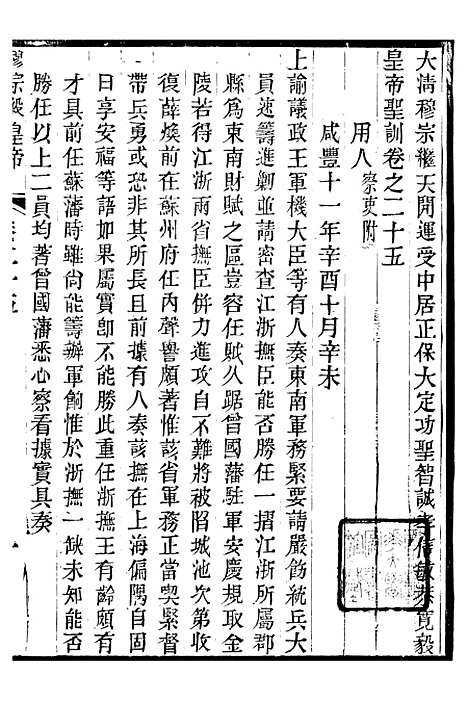 大清穆宗繼天開運受中居正保大定功聖智誠孝信敏恭寬毅
皇帝聖訓卷之二十五
用人 察吏附
咸豐十一年辛酉十月辛未
上諭議政王軍機大臣等有人奏東南軍務緊要請嚴飭統兵大
員速籌進勦並請密查江浙撫臣能否勝任一摺江浙所屬郡
縣爲東南財賦之區豈容任賊久踞曾國藩駐軍安慶規取金
陵若得江浙兩省撫臣併力進攻自不難將被陷城池次第收
復薛煥前在蘇州府任內聲譽頗著惟該省軍務正當喫緊督
帶兵勇或恐非其所長且前據有人奏該撫在上海偏隅自固
日享安福等語如果屬實卽不能勝此重任浙撫王有齡頗有
才具前任蘇藩時雖尚能籌辦軍餉惟於浙撫一缺未知能否
勝任以上二員均著曾國藩悉心察看據實具奏
穆宗毅皇帝